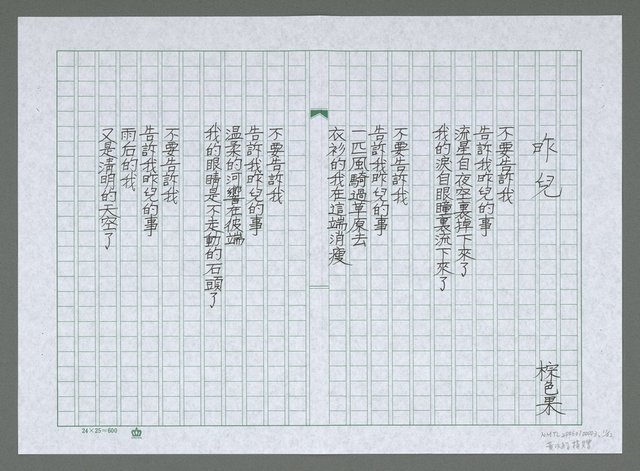 昨兒
棕色果
不要告訴我
告訴我昨兒的事
流星自夜空裏掉下來了
我的淚自眼瞳裏流下來了
不要告訴我
告訴我昨兒的事
一匹風騎過草原去
衣衫的我在這端消瘦
不要告訴我
告訴我昨兒的事
溫柔的河響在彼端
我的眼睛是不走動的石頭了
不要告訴我
告訴我昨兒的事
雨后的我
又是清明的天空了
24×25=600